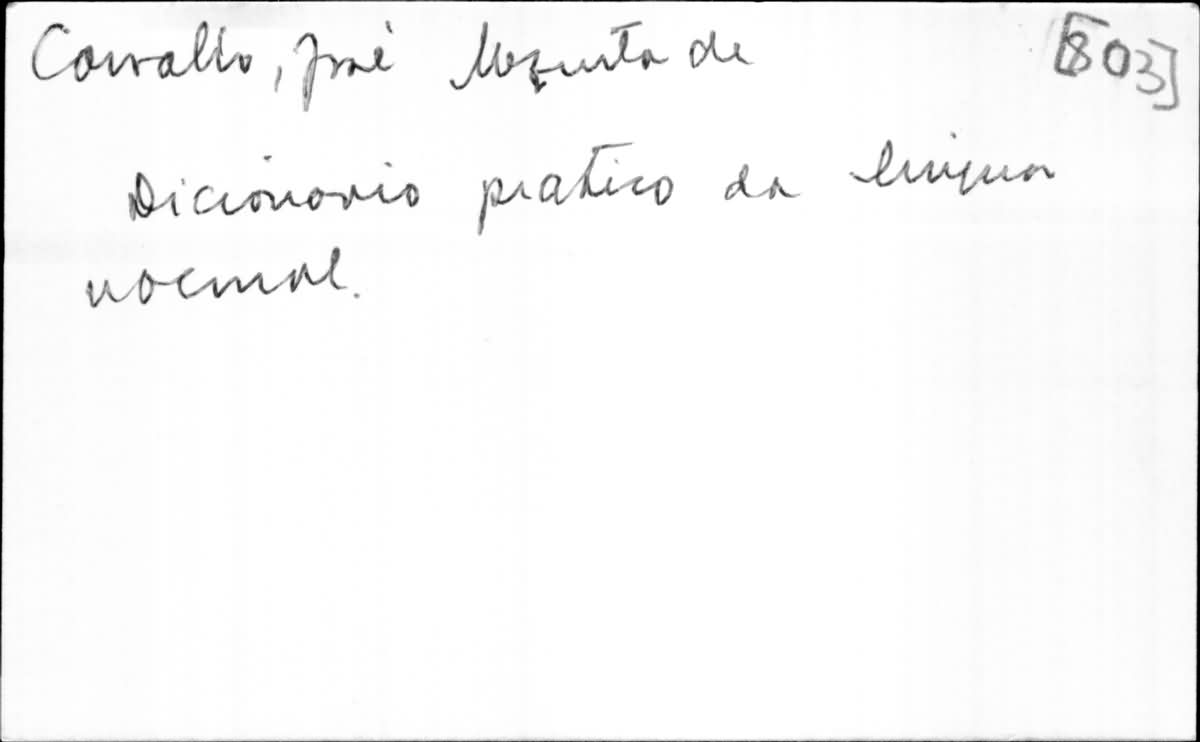 Carvalho, José Mesquita de [803]
Dicionario pratico da lingua
nacional.